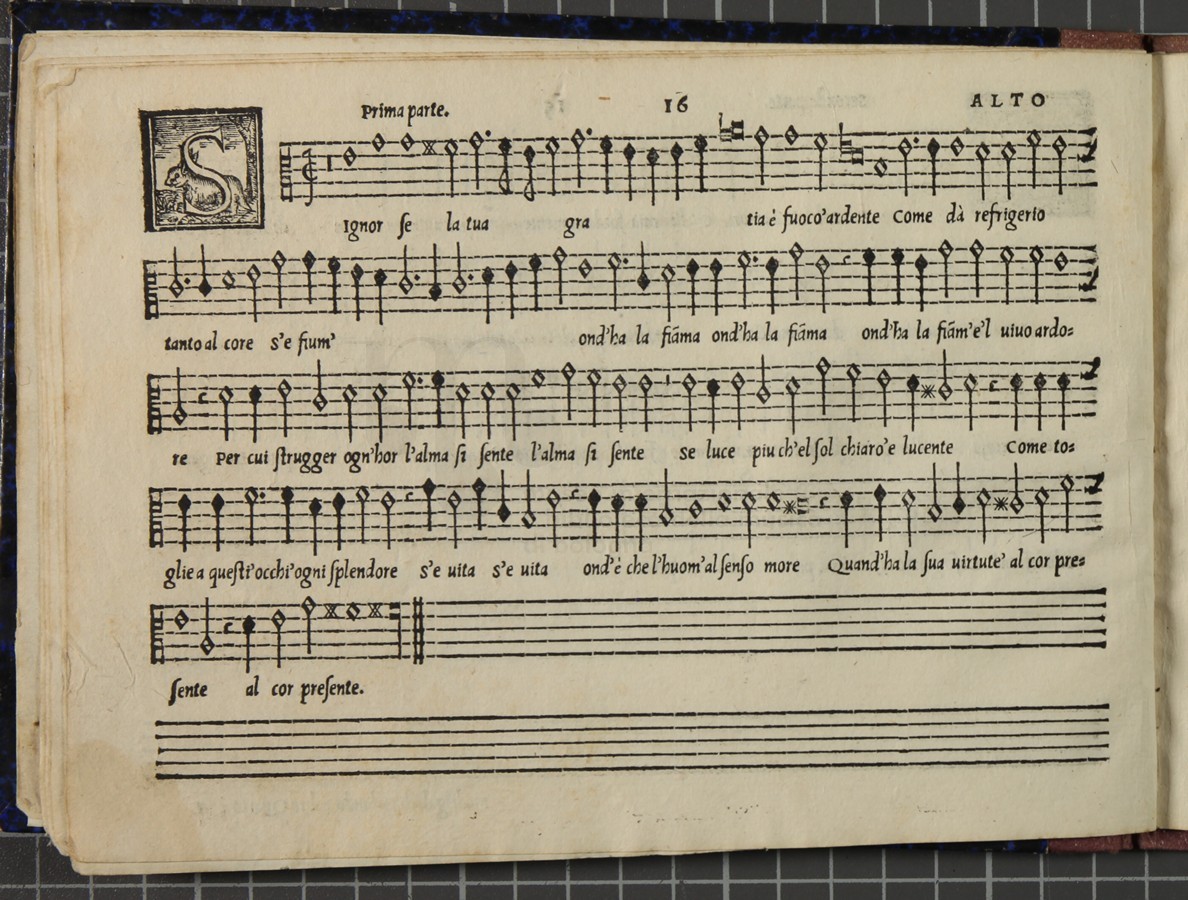 Prima parte. 16 ALTO
SIgnor ſe la tua gra tia è fuoco'ardente Come dà refrigerio
tanto al core s'e fium' ond'ha la fiāma ond'ha la fiāma ond'ha la fiām'e'l uiuo ardo=
re Per cui ſtrugger ogn'hor l'alma ſi ſente l'alma ſi ſente se luce piu ch'el ſol chiaro'e lucente Come to=
glie a queſti'occhi'ogni ſplendore s'e uita s'e uita ond'è che l'huom'al ſenſo more Quand'ha la ſua uirtute' al cor pre=
ſente al cor preſente.